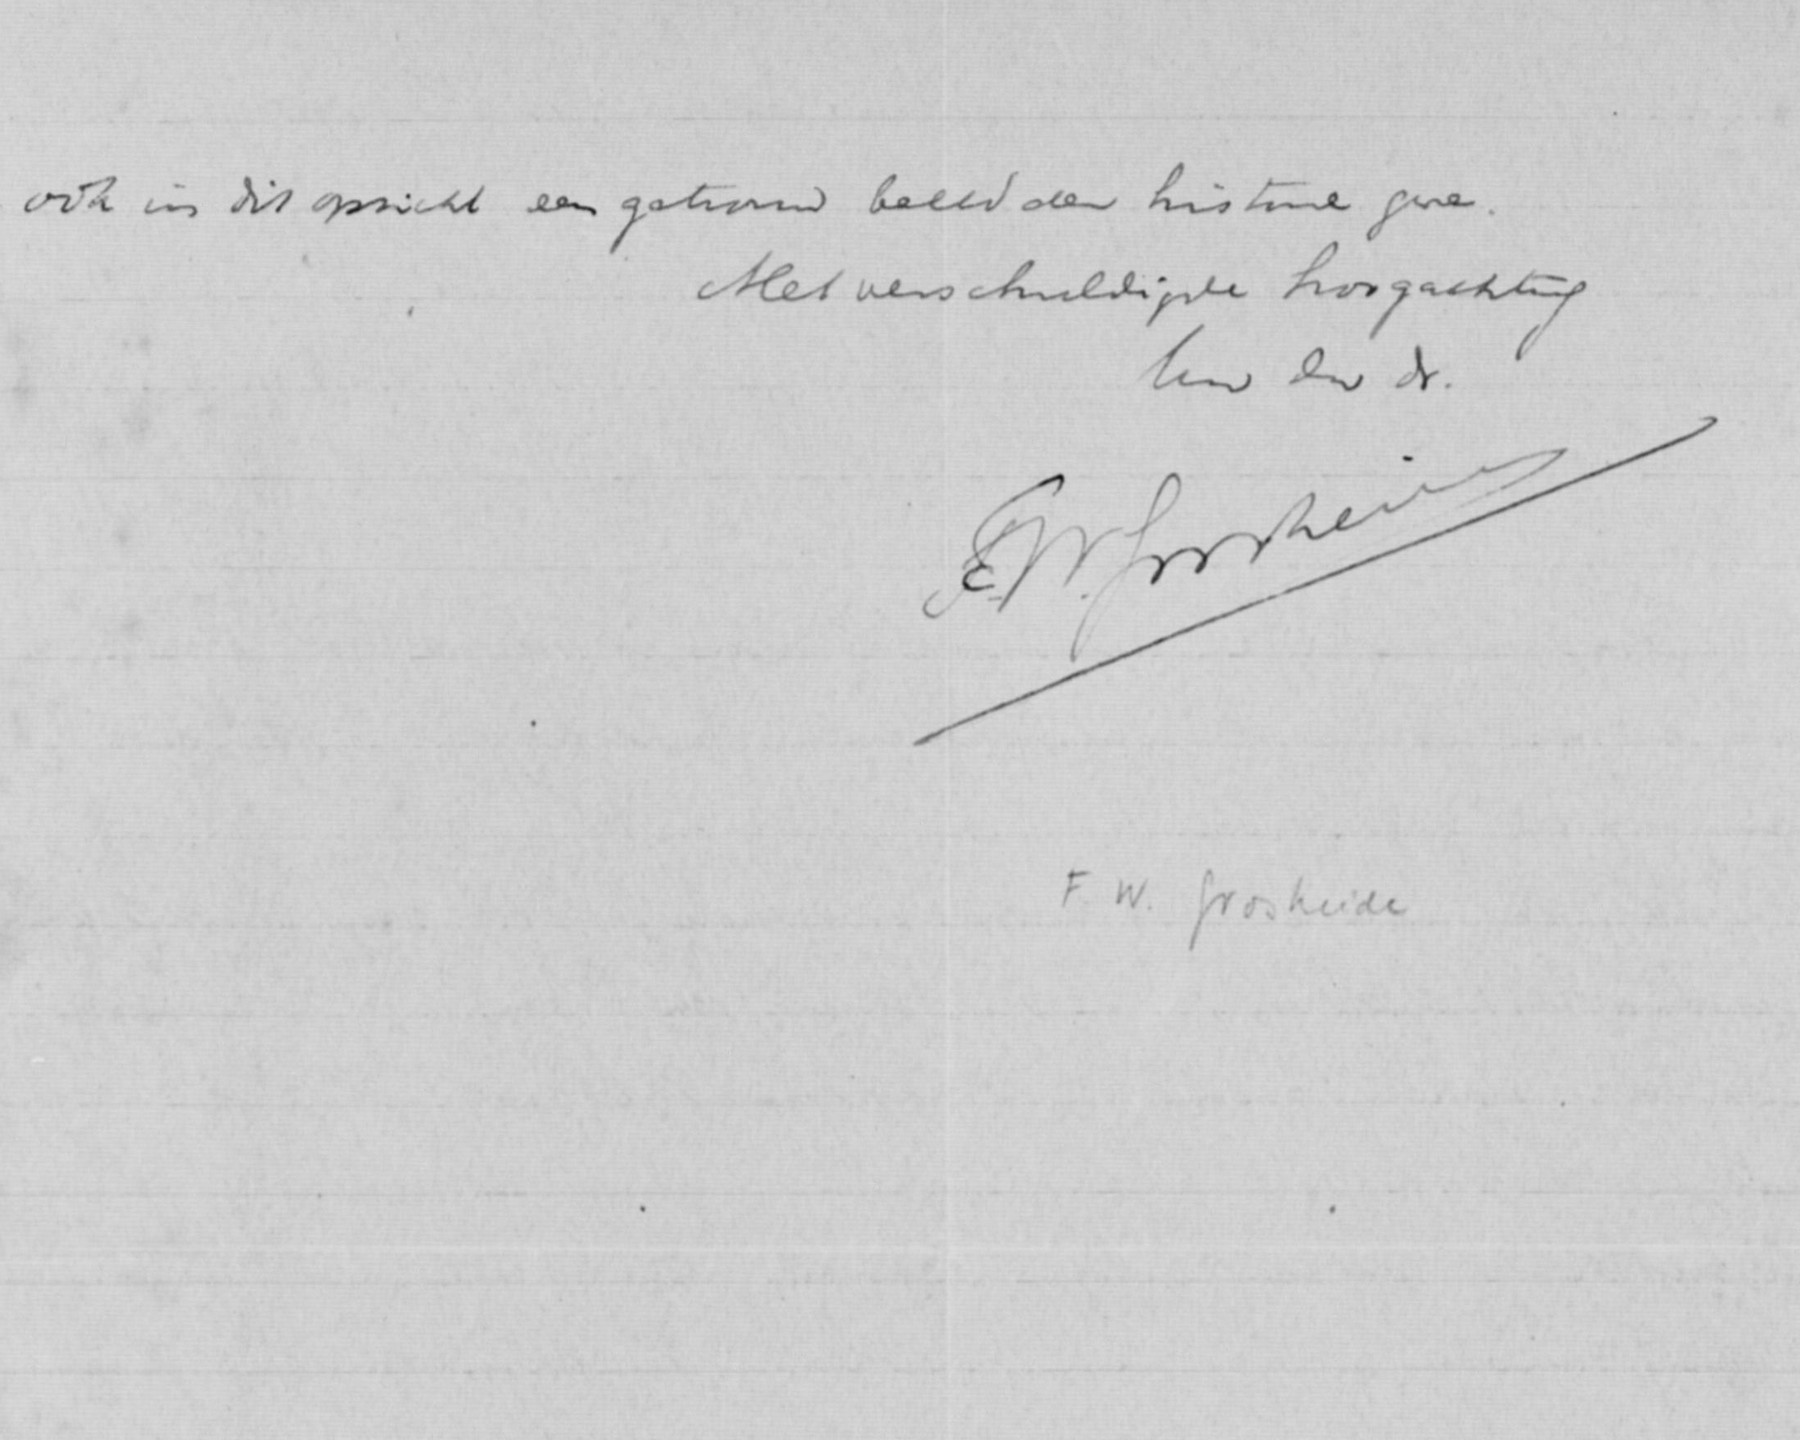 ook in dit opzicht een getrouw beeld der historie geve.
Met verschuldigde hoogachting
Uw dw dr.
F.W. Grosheide
F. W. Grosheide